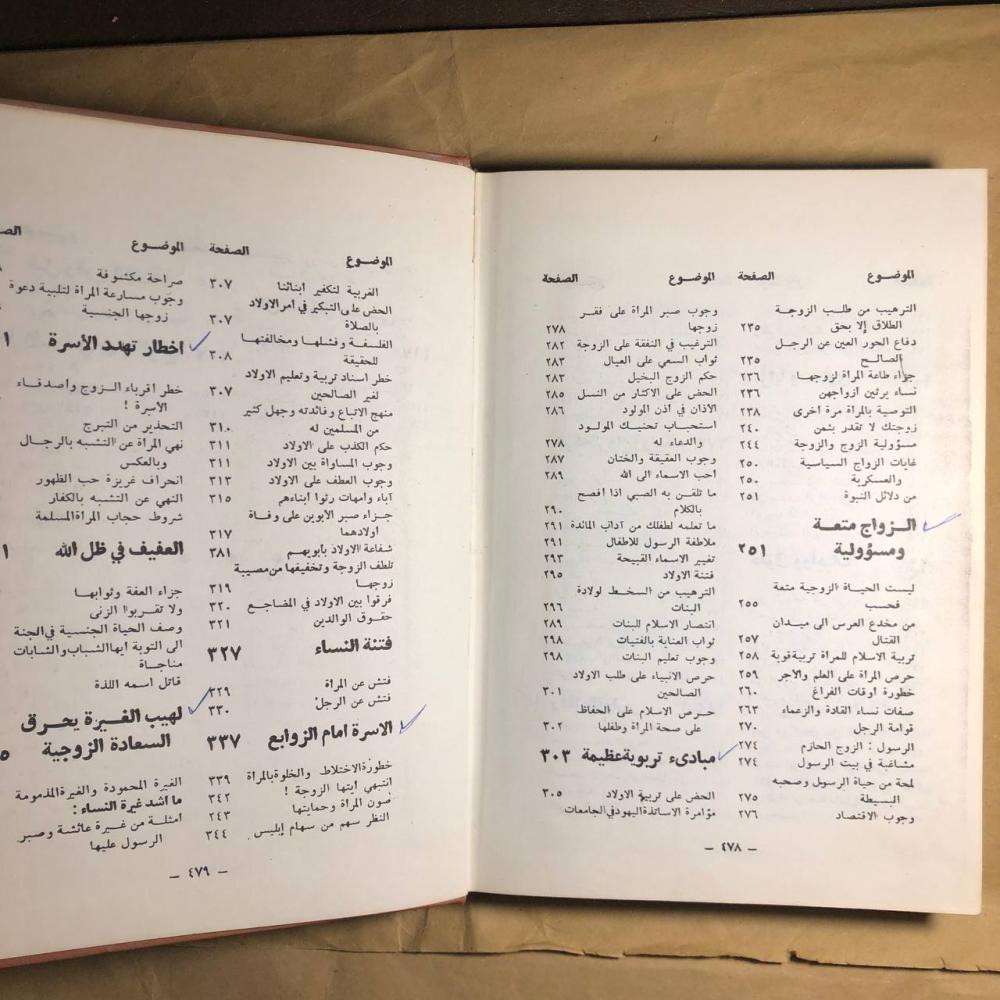 الموضوع الصفحة
الترهيب من طلب الزوجة
الطلاق إلا بحق ٢٣٥
دفاع الحور العين عن الرجل
الصالح ٢٣٥
جزاء طاعة المرأة لزوجها ٢٣٦
نساء يرثين ازواجهن ٢٣٦
التوصية بالمرأة مرة اخرى ٢٣٨
زوجتك لا تقدر بثمن ٢٤٠
مسؤولية الزوج والزوجة ٢٤٤
غايات الزواج السياسية ٢٥٠
والعسكرية ٢٥٠
من دلائل النبوة ٢٥١
الزواج متعة
ومسؤولية ٢٥١
ليست الحياة الزوجية متعة
فحسب ٢٥٥
من مخدع العرس الى ميدان
القتال ٢٥٧
تربية الاسلام للمرأة تربية قوية ٢٥٨
حرص المرأة على العلم والأجر ٢٥٩
خطورة اوقات الفراغ ٢٦٠
صفات نساء القادة والزعماء ٢٦٣
قوامة الرجل ٢٧٠
الرسول : الزوج الحازم ٢٧٤
مشاغبة في بيت الرسول ٢٧٤
لمحة من حياة الرسول وصحبه
البسيطة ٢٧٥
وجوب الاقتصاد ٢٧٦
الموضوع الصفحة
وجوب صبر المرأة على فقر
زوجها ٢٧٨
الترغيب في النفقة على الزوجة ٢٨٢
ثواب السعي على العيال ٢٨٣
حكم الزوج البخيل ٢٨٣
الحض على الاكثار من النسل ٢٨٥
الأذان في اذن المولود ٢٨٦
استحباب تحنيك المولود
والدعاء له ٢٧٨
وجوب العقيقة والختان ٢٨٧
أحب الاسماء الى الله ٢٨٩
ما تلقن به الصبي اذا افصح
بالكلام ٢٩٠
ما تعلمه لطفلك من آداب المائدة ٢٩١
ملاطفة الرسول للاطفال ٢٩١
تغيير الاسماء القبيحة ٢٩٣
فتنة الاولاد ٢٩٥
الترهيب من السخط لولادة
البنات ٢٩٦
انتصار الاسلام للبنات ٢٨٩
ثواب العناية بالفتيات ٢٩٨
وجوب تعليم البنات ٢٩٨
حرص الانبياء على طلب الاولاد
الصالحين ٣٠١
حرص الاسلام على الحفاظ
على صحة المرأة وطفلها ٣٠٢
مبادىء تربوية عظيمة ٣٠٣
الحض على تربية الاولاد ٣٠٥
مؤامرة الاساتذة اليهود في الجامعات
– ٤٧٨ –
الموضوع الصفحة
الغربية لتكفير ابنائنا ٣٠٧
الحض على التبكير في امر الاولاد
بالصلاة ٣٠٧
الفلسفة وفشلها ومخالفتها
للحقيقة ٣٠٨
خطر اسناد تربية وتعليم الاولاد
لغير الصالحين ٣٠٧
منهج الاتباع وفائدته وجهل كثير
من المسلمين له ٣١٠
حكم الكذب على الاولاد ٣١١
وجوب المساواة بين الاولاد ٣١١
وجوب العطف على الاولاد ٣١٣
آباء وامهات رثوا ابناءهم ٣١٥
جزاء صبر الابوين على وفاة
اولادهما ٣١٧
شفاعة الاولاد بابويهم ٣٨١
تلطف الزوجة وتخفيفها من مصيبة
زوجها ٣١٩
فرقوا بين الاولاد في المضاجع ٣٢٠
حقوق الوالدين ٣٢١
فتنة النساء ٣٢٧
فتش عن المرأة ٣٢٩
فتش عن الرجل ٣٣٠
الاسرة امام الزوابع ٣٣٧
خطورة الاختلاط والخلوة بالمرأة ٣٣٩
انتبهي ايتها الزوجة ! ٣٤٢
صون المرأة وحمايتها ٢٤٣
النظر سهم من سهام إبليس ٣٤٤
الموضوع
صراحة مكشوفة
وجوب مسارعة المرأة لتلبية دعوة
زوجها الجنسية
اخطار تهدد الأسرة
خطر أقرباء الزوج واصدقاء
الأسرة !
التحذير من التبرج
نهي المرأة عن التشبه بالرجال
وبالعكس
انحراف غريزة حب الظهور
النهي عن التشبه بالكفار
شروط حجاب المرأة المسلمة
العفيف في ظل الله
جزاء العفة وثوابها
ولا تقربوا الزنى
وصف الحياة الجنسية في الجنة
الى التوبة ايها الشباب والشابات
مناجاة
قاتل اسمه اللذة
لهيب الغيرة يحرق
السعادة الزوجية
الغيرة المحمودة والغيرة المذمومة
ما اشد غيرة النساء :
امثلة من غيرة عائشة وصبر
الرسول عليها
– ٤٧٩ –